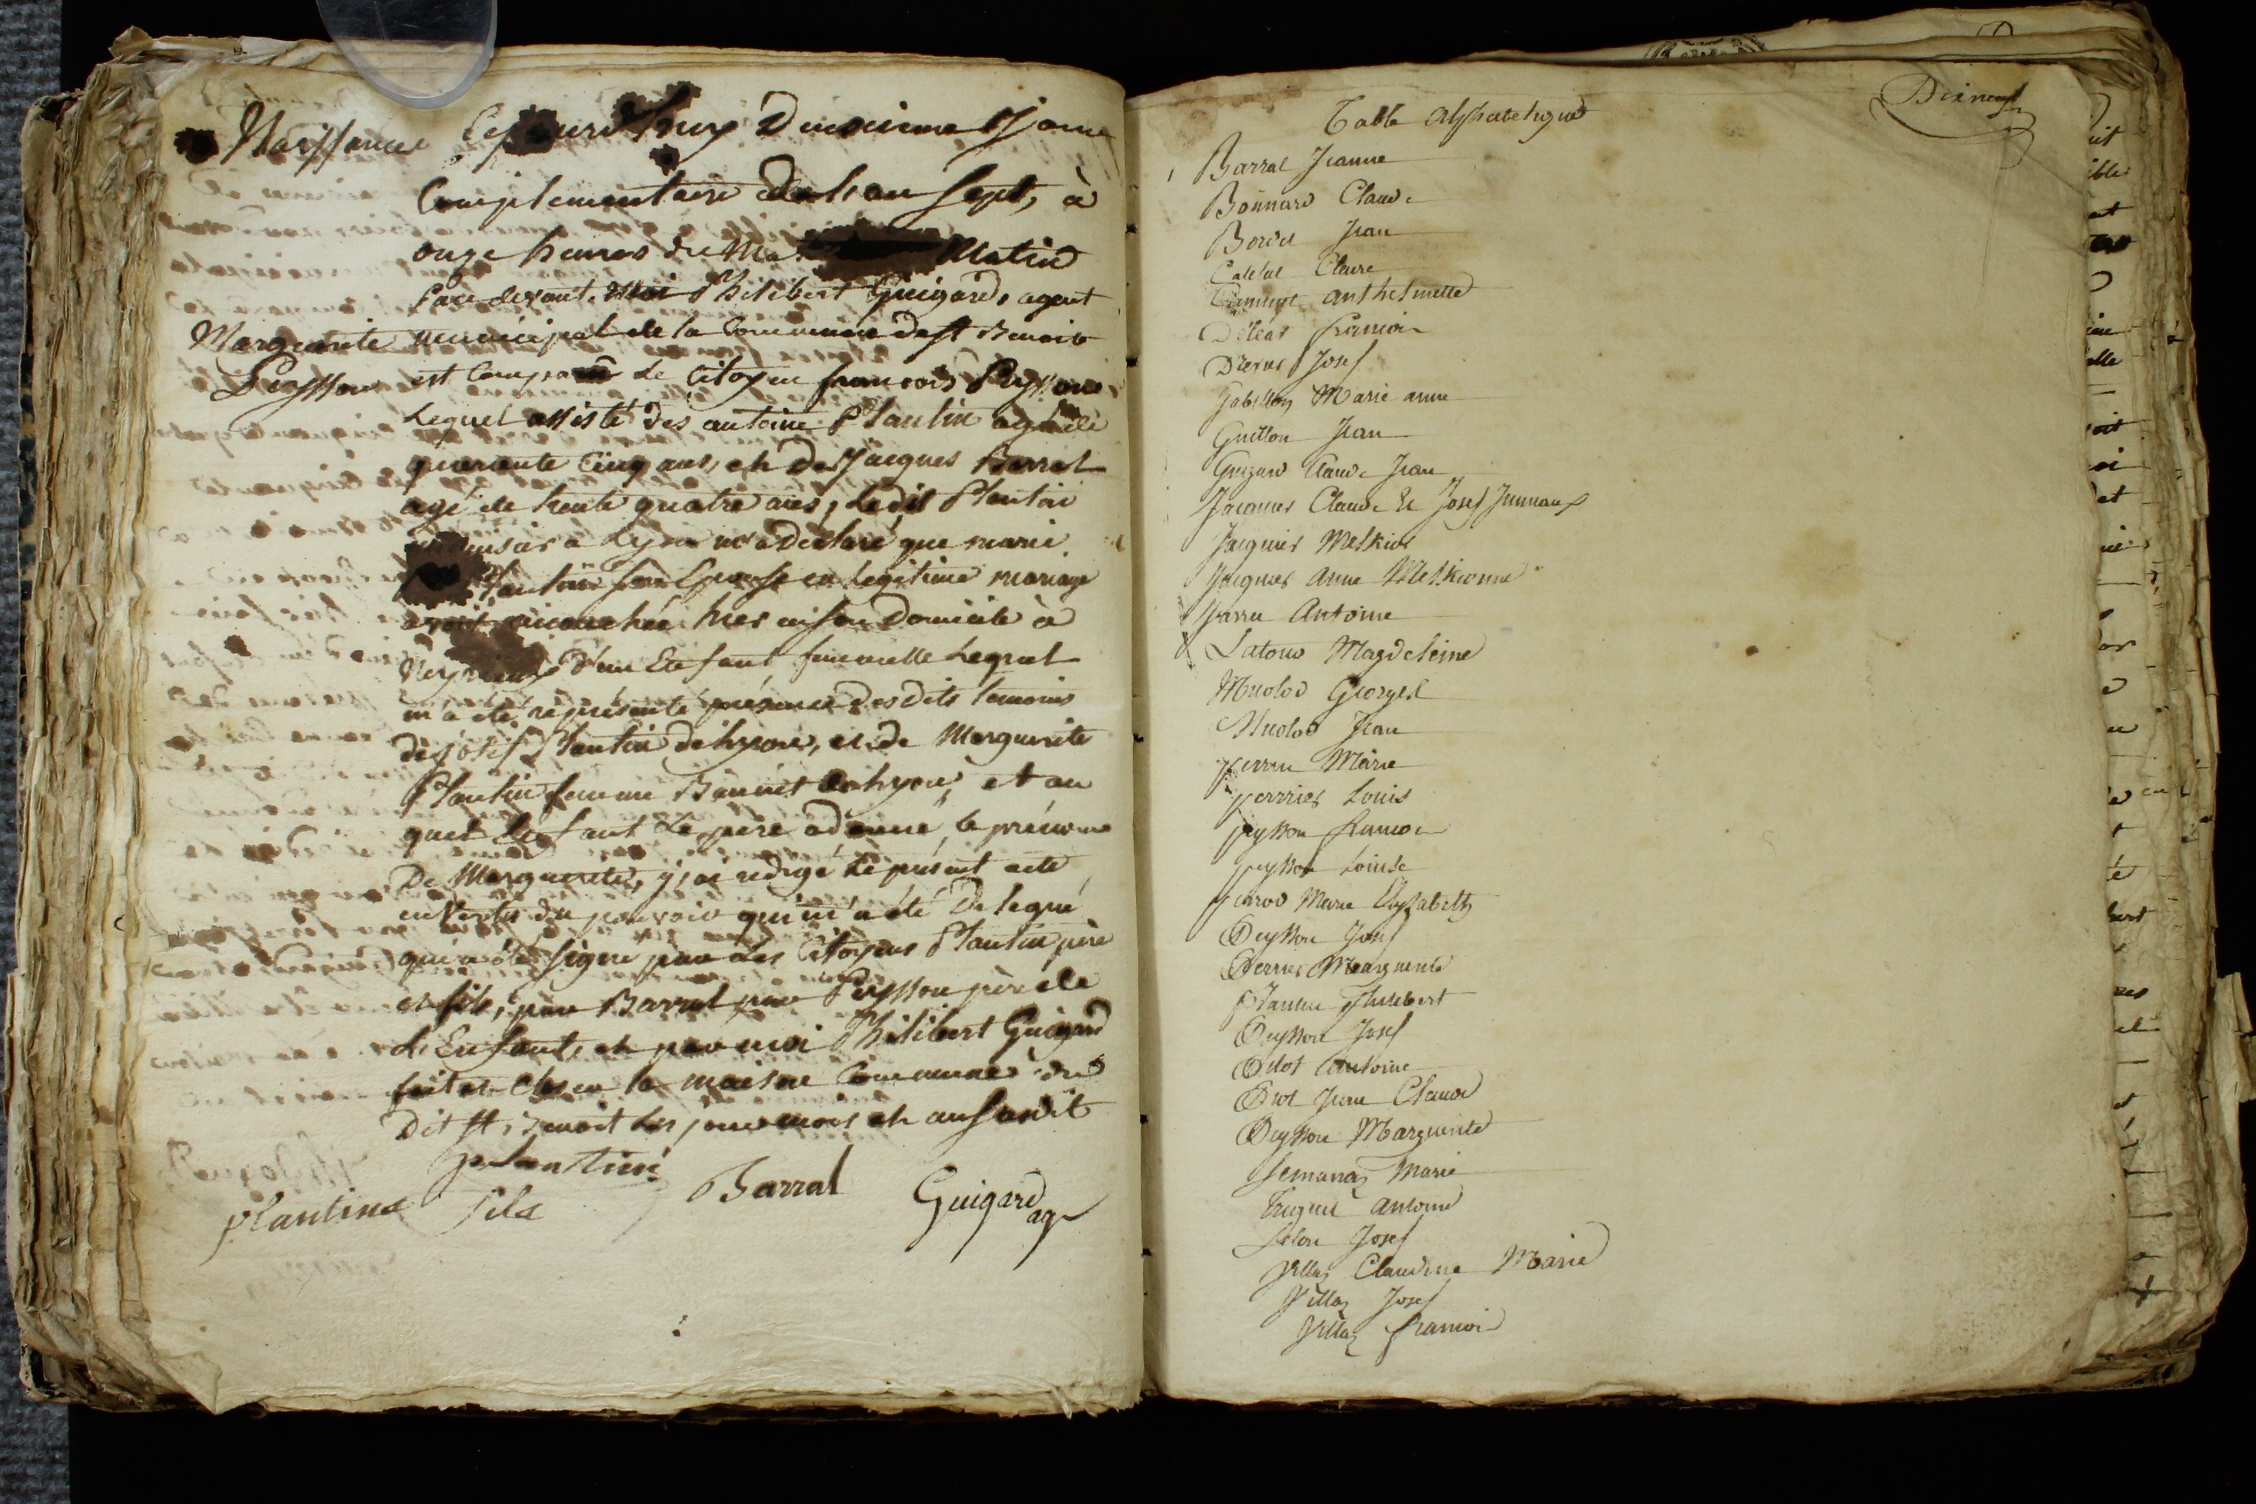 Naissance
Marguerite
Peysson
Cejourd'huy Deuxieme Jour
Complementaire de l'an Sept, à
onze heures du Matin
Par devant Moi Philibert Guigard, agent
municipal de la Commune de St Benoit
est comparu Le Citoyen francois Peysson
Lequel assisté des antoine Plantin agé de
quarente Cinq ans, et de Jacques Barral
agé de trente quatre ans, Ledit Plantin
a Lyon m'a Déclaré que marie
Plantin son Epouse en Legitime mariage
avoit accouchée hier en son Domicile à
d'un Enfant femmelle Lequel
m'a été représenté présence desdits temoins
de josef Plantin de Lyon, et de Marguerite
Plantin femme de Lyon, et au
quel Enfant Le père a donné le prénom
De Marguerite, j'ai redigé Le présent acte
en Vertu du pouvoir qui m'a été Delegué
qui a été signé par Les Citoyens Plantin père
et fils, par Barral par Peysson père de
L'Enfant, et par moi Philibert Guigard
fait et clos en la maison Commune du
Dit St Benoit Les jour mois et an susdit
plantin
plantin fils Barral Guigard ag
Table Alphabetique
Dixneuf
Barral Jeanne
Bonnard Claude
Bordel Jean
Claire
anthelmette
francois
Josef
Marie anne
Guillon Jean
Guigard Claude Jean
Jacquier Claude Et Josef Jumeaux
Jacquier Melkior
Jacquier Anne Melkionne
Antoine
Latour Magdeleine
George
Jean
perrin Marie
perrier Louis
peysson francois
peysson Louise
Marie Elizabeth
Peysson Josef
Perrier Marguerite
Plantin Philibert
Peysson Josef
Pilot antoine
Jean Claude
Peysson Marguerite
Marie
antoine
Josef
Villaz Claudine Marie
Villaz Josef
Villaz francois